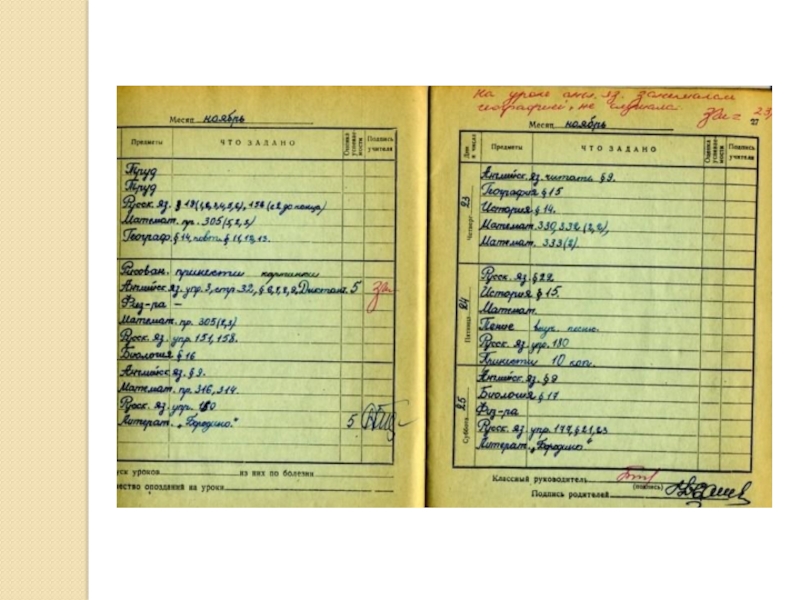 Месяц ноябрь
Предметы ЧТО ЗАДАНО Оценка успеваемости Подпись учителя
Труд
Труд
Русск. яз.
Математ. пр. 305(5,2,3)
Географ. § 14, повт. § 11, 12, 13.
Рисован. принести картинки
Английск. яз. упр. 3, стр. 32, Диктант. 5
Физ-ра —
Математ. пр. 305(2,3)
Русск. яз. упр. 151, 158.
Биология § 16
Английск. яз. § 9.
Математ. пр. 316, 314.
Русск. яз. упр. 180
Литерат. „Бородино." 5
уск уроков из них по болезни
ество опозданий на уроки
На уроке англ. яз. занималась
географией, не слушала. 23
27
Месяц ноябрь
Дни и число Предметы ЧТО ЗАДАНО Оценка успеваемости Подпись учителя
Четверг 23
Английск. яз. читать § 9.
География § 15
История § 14.
Математ. 330, 332 (2,3),
Математ. 333(2)
Пятница 24
Русск. яз. § 22
История § 15.
Математ.
Пение выуч. песню.
Русск. яз. упр. 180
Принести 10 коп.
Суббота 25
Английск. яз. § 9
Биология § 17
Физ-ра
Русск. яз. упр. 179, § 21, 23
Литерат. „Бородино"
Классный руководитель
(подпись)
Подпись родителей